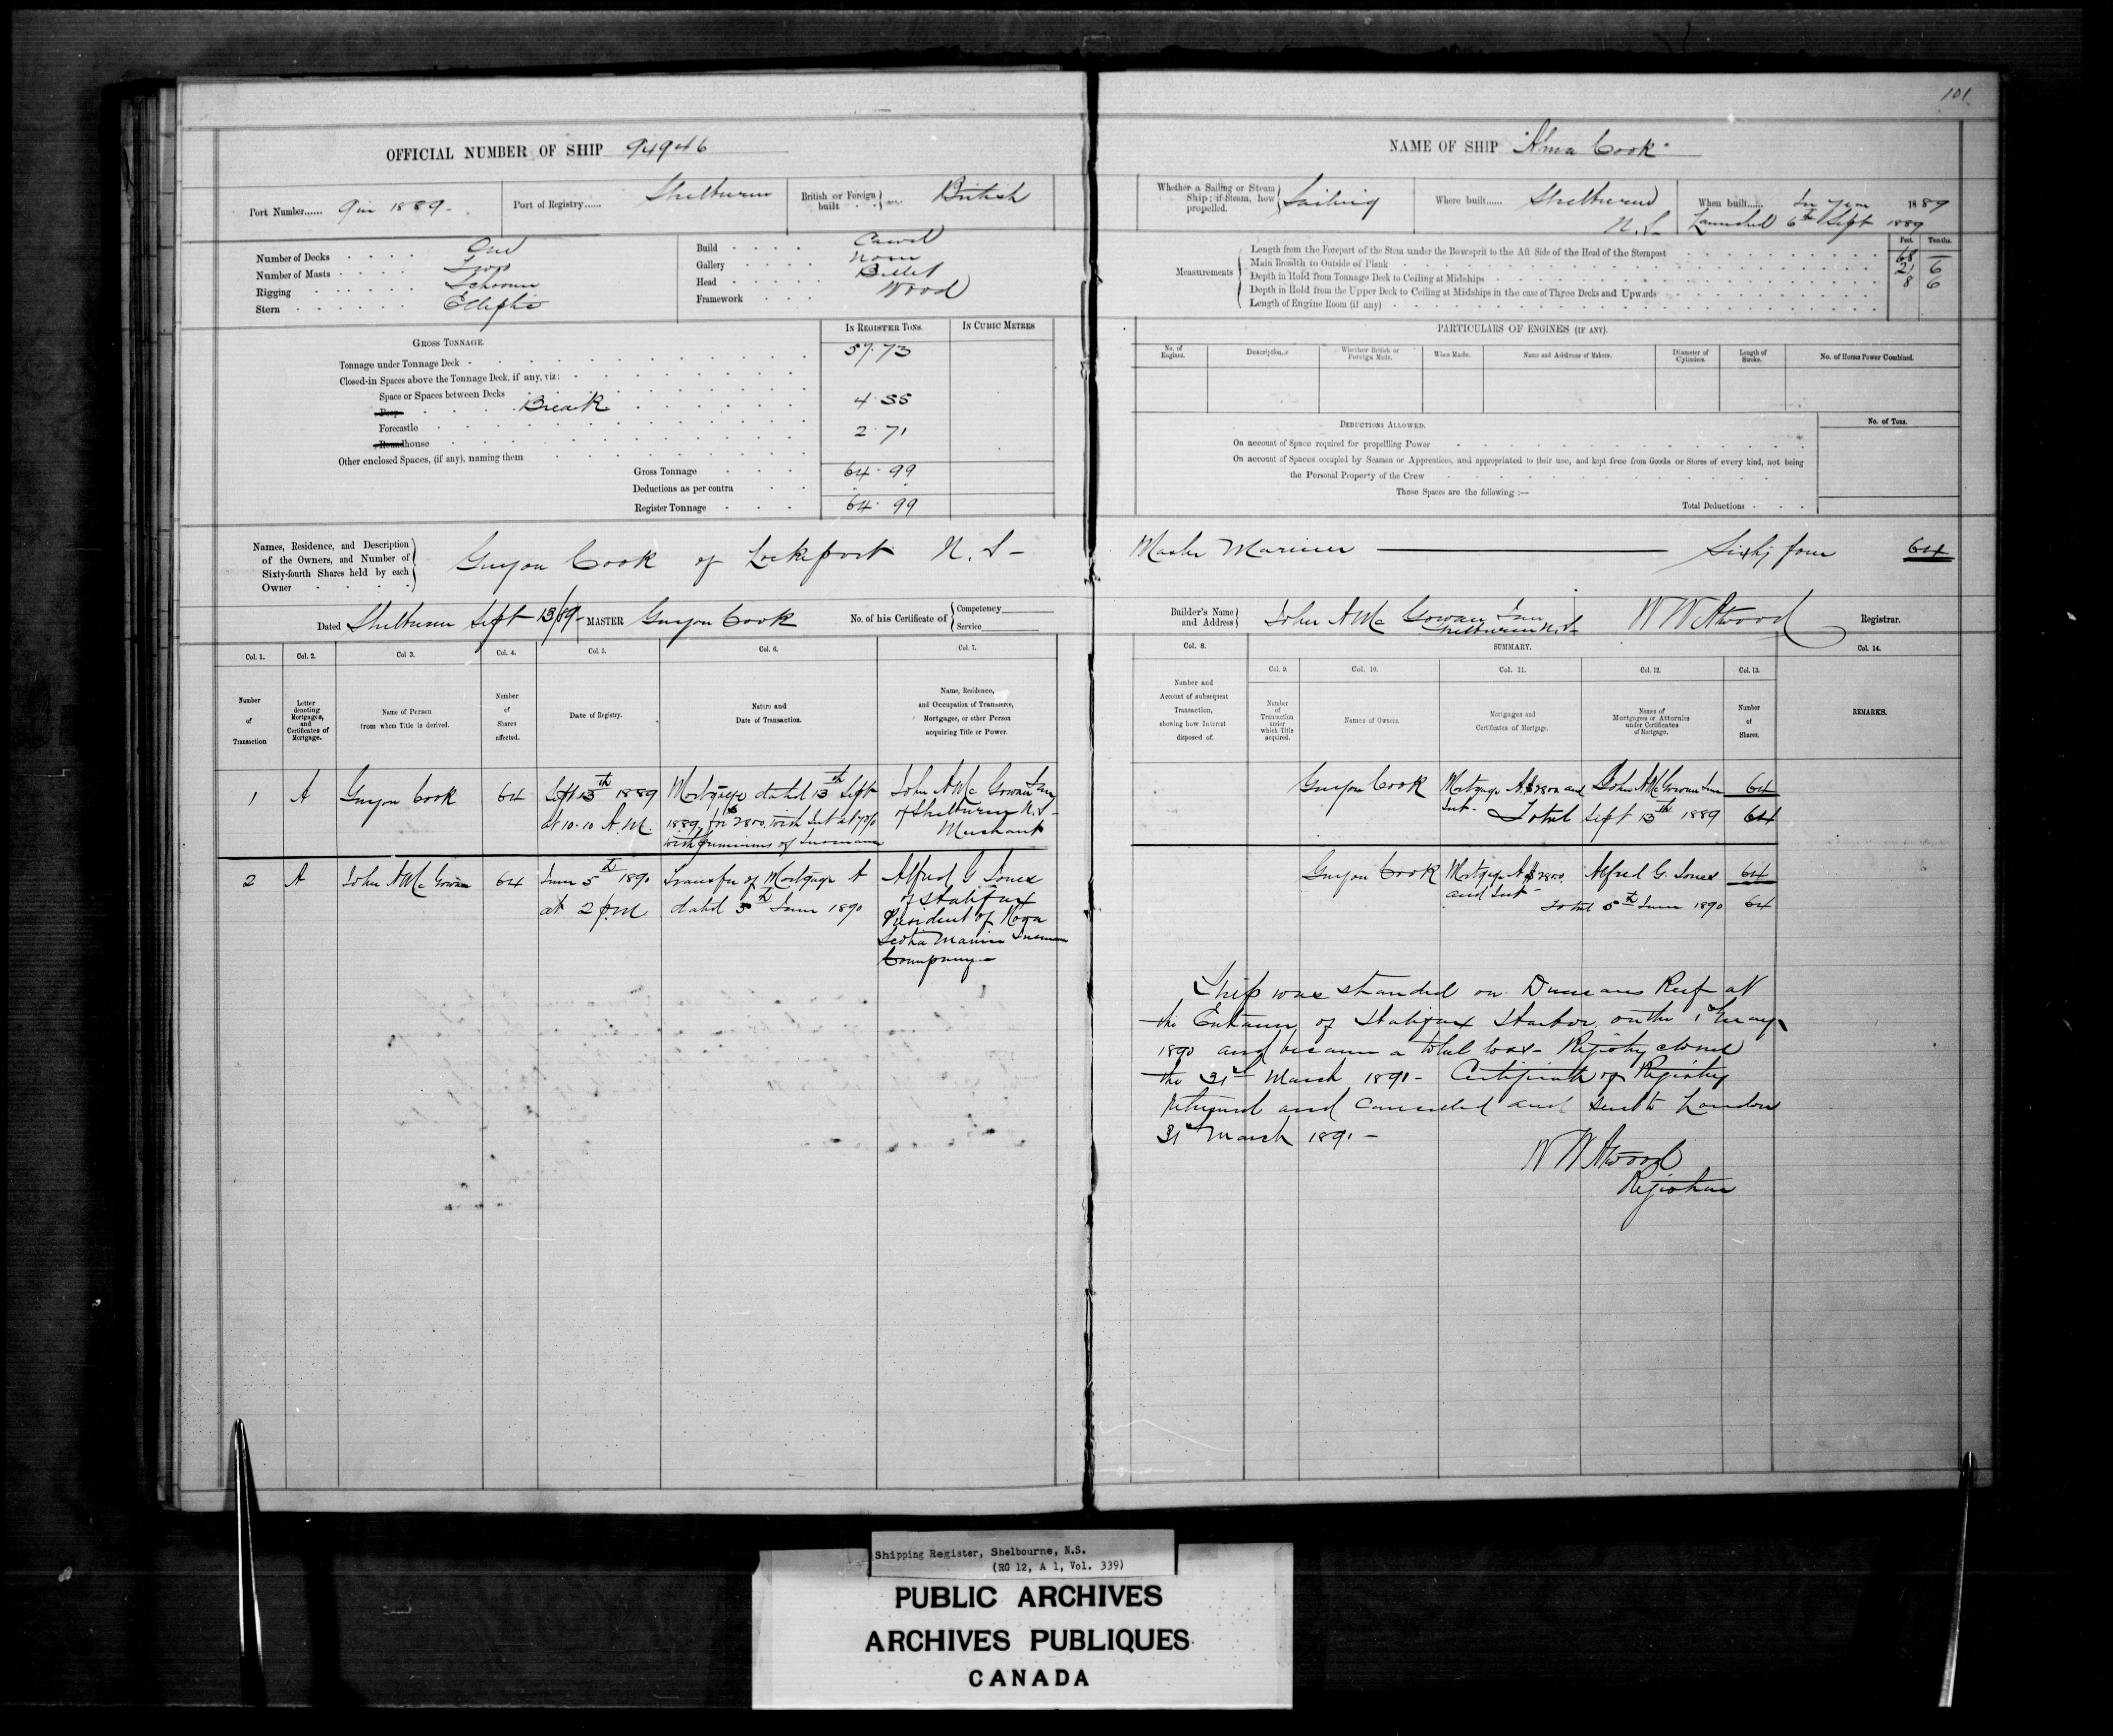 101
OFFICIAL NUMBER OF SHIP 94946
Port Number...... 9 in 1889-
Port of Registry...... Shelburne
British or Foreign built British
Number of Decks One
Number of Masts Two
Rigging Schooner
Stern Elliptic
Build Carvel
Gallery None
Head Billet
Framework Wood
GROSS TONNAGE.
IN REGISTER TONS.
IN CUBIC METRES
Tonnage under Tonnage Deck 57.73
Closed-in Spaces above the Tonnage Deck, if any, viz:
Space or Spaces between Decks
Poop Break 4.55
Forecastle
Roundhouse 2.71
Other enclosed Spaces, (if any), naming them
Gross Tonnage 64.99
Deductions as per contra
Register Tonnage 64.99
Names, Residence, and Description
of the Owners, and Number of
Sixty-fourth Shares held by each
Owner
Guyon Cook of Lockeport N.S-
Dated Shelburne Sept 13/89- MASTER Guyon Cook No. of his Certificate of Competency
Service
Col. 1. Col. 2. Col. 3. Col. 4. Col. 5. Col. 6. Col. 7.
Number of Transaction
Letter denoting Mortgages, and Certificates of Mortgage.
Name of Person from whom Title is derived.
Number of Shares affected.
Date of Registry.
Nature and Date of Transaction.
Name, Residence, and Occupation of Transferee, Mortgagee, or other Person acquiring Title or Power.
1 A Guyon Cook 64
Sept 13th 1889
at 10.10 A.M.
Mortgage dated 13th Sept
1889, for $2800. with Int at 7 p/o
with premiums of Insurance
John A McGowan
of Shelburne N.S-
Merchant
2 A John A McGowan 64
June 5th 1890
at 2 p.m
Transfer of Mortgage A
dated 5th June 1890
Alfred G Jones
of Halifax
President of Nova
Scotia Marine Insurance
Company-
NAME OF SHIP "Alma Cook"
Whether a Sailing or Steam
Ship; if Steam, how
propelled.
Sailing
Where built...... Shelburne
N.S-
When built...... In year 1889
Launched 6th Sept 1889
Measurements
Feet. Tenths.
Length from the Forepart of the Stem under the Bowsprit to the Aft Side of the Head of the Sternpost 68 -
Main Breadth to Outside of Plank 21 6
Depth in Hold from Tonnage Deck to Ceiling at Midships 8 6
Depth in Hold from the Upper Deck to Ceiling at Midships in the case of Three Decks and Upwards
Length of Engine Room (if any)
PARTICULARS OF ENGINES (IF ANY).
No. of Engines.
Description.
Whether British or Foreign Made.
When Made.
Name and Address of Makers.
Diameter of Cylinders.
Length of Stroke.
No. of Horses Power Combined.
DEDUCTIONS ALLOWED.
No. of Tons.
On account of Space required for propelling Power
On account of Spaces occupied by Seamen or Apprentices, and appropriated to their use, and kept free from Goods or Stores of every kind, not being
the Personal Property of the Crew
These Spaces are the following :—
Total Deductions
Master Mariner — Sixty four 64
Builder's Name
and Address
John A McGowan
Shelburne N.S-
W W Atwood Registrar.
Col. 8. SUMMARY. Col. 14.
Col. 9. Col. 10. Col. 11. Col. 12. Col. 13.
Number and Account of subsequent Transaction, showing how Interest disposed of.
Number of Transaction under which Title acquired.
Names of Owners.
Mortgages and Certificates of Mortgage.
Names of Mortgagees or Attornies under Certificates of Mortgage.
Number of Shares.
REMARKS.
Guyon Cook Mortgage A $2800 and John A McGowan 64
Int- Total Sept 13th 1889 64
Guyon Cook Mortgage A $2800. Alfred G. Jones 64
and Int- Total 5th June 1890 64
Ship was stranded on Duncans Reef at
the Entrance of Halifax Harbor on the 1st May
1890 and became a total loss- Registry closed
the 31st March 1891- Certificate of Registry
returned and cancelled and sent to London
31st March 1891-
W W Atwood
Registrar
Shipping Register, Shelbourne, N.S.
(RG 12, A 1, Vol. 339)
PUBLIC ARCHIVES
ARCHIVES PUBLIQUES
CANADA